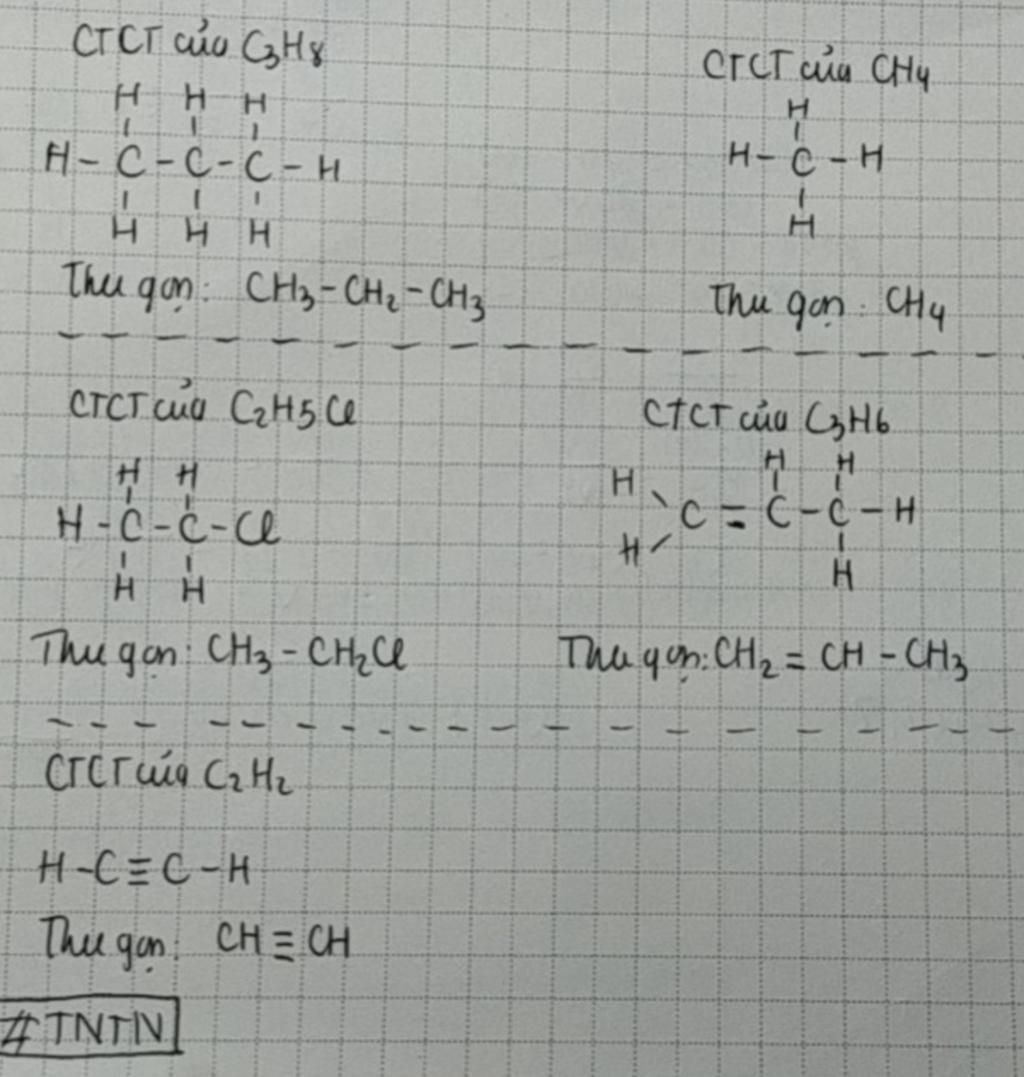 CTCT của C₃H₈
H H H
H - C - C - C - H
H H H
Thu gọn: CH₃-CH₂-CH₃
CTCT của CH₄
H
H - C - H
H
Thu gọn: CH₄
CTCT của C₂H₅Cl
H H
H - C - C - Cl
H H
Thu gọn: CH₃-CH₂Cl
CTCT của C₃H₆
H H H
C = C - C - H
H H
Thu gọn: CH₂=CH-CH₃
CTCT của C₂H₂
H - C ≡ C - H
Thu gọn: CH≡CH
#TNTN